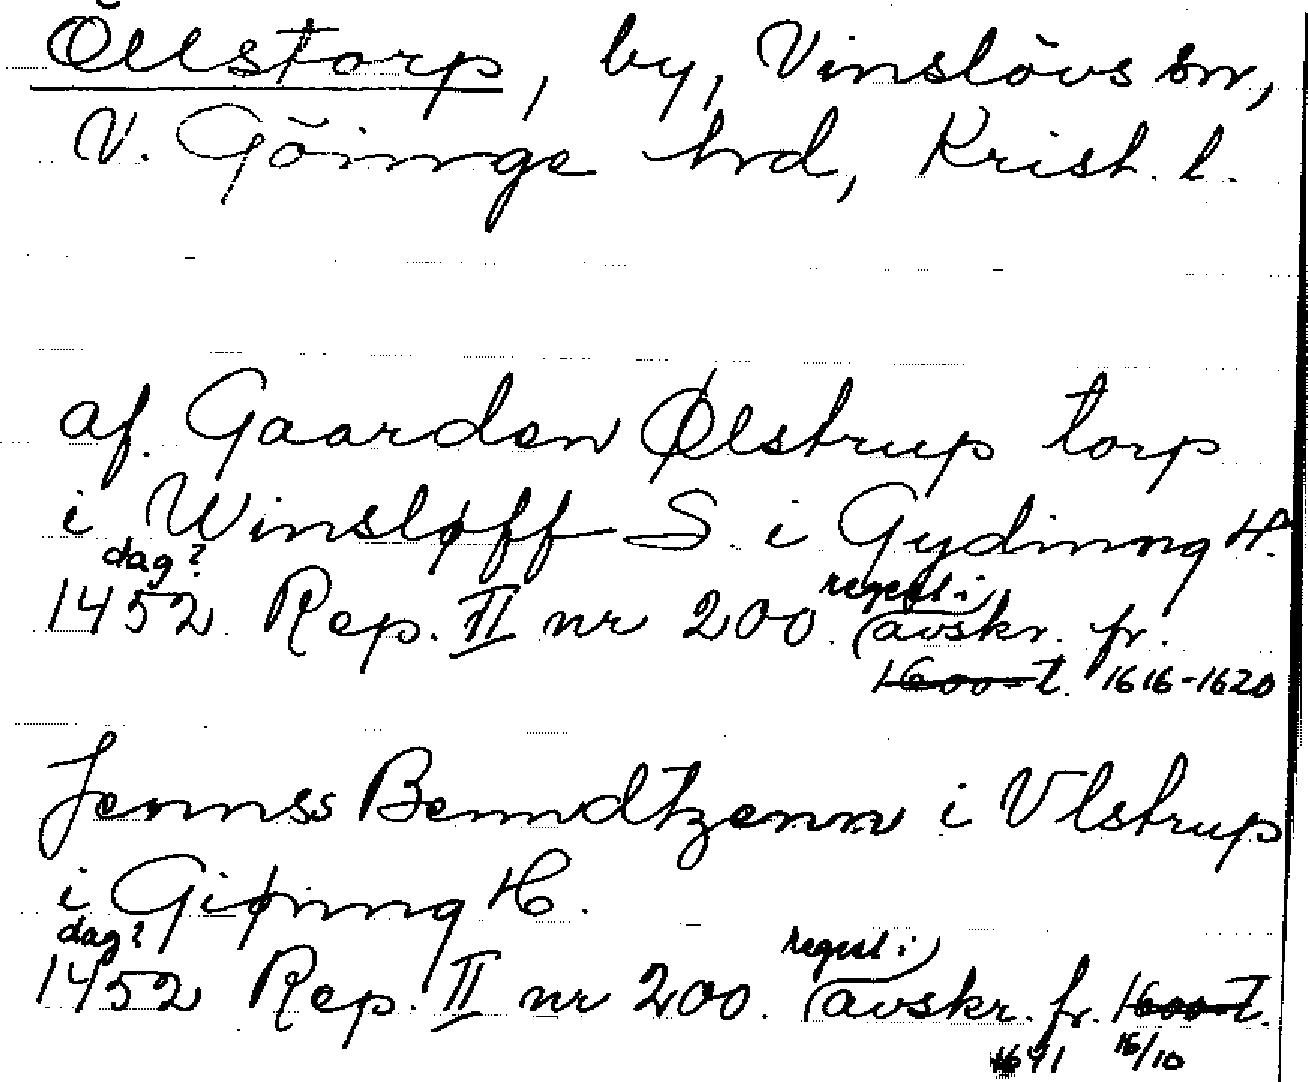 Öllstorp, by, Vinslövs sn,
V. Göinge hrd, Krist. l.
af Gaarden Ølstrup torp
i Winsløff S. i Gydinng H.
dag?
1452 Rep. II nr 200. (regest i) avskr. fr.
1600-t. 1616-1620
Jennss Benndtzenn i Vlstrup
i Giønng H.
dag?
1452 Rep. II nr 200. (regest i) avskr. fr. 1600-t.
16/10